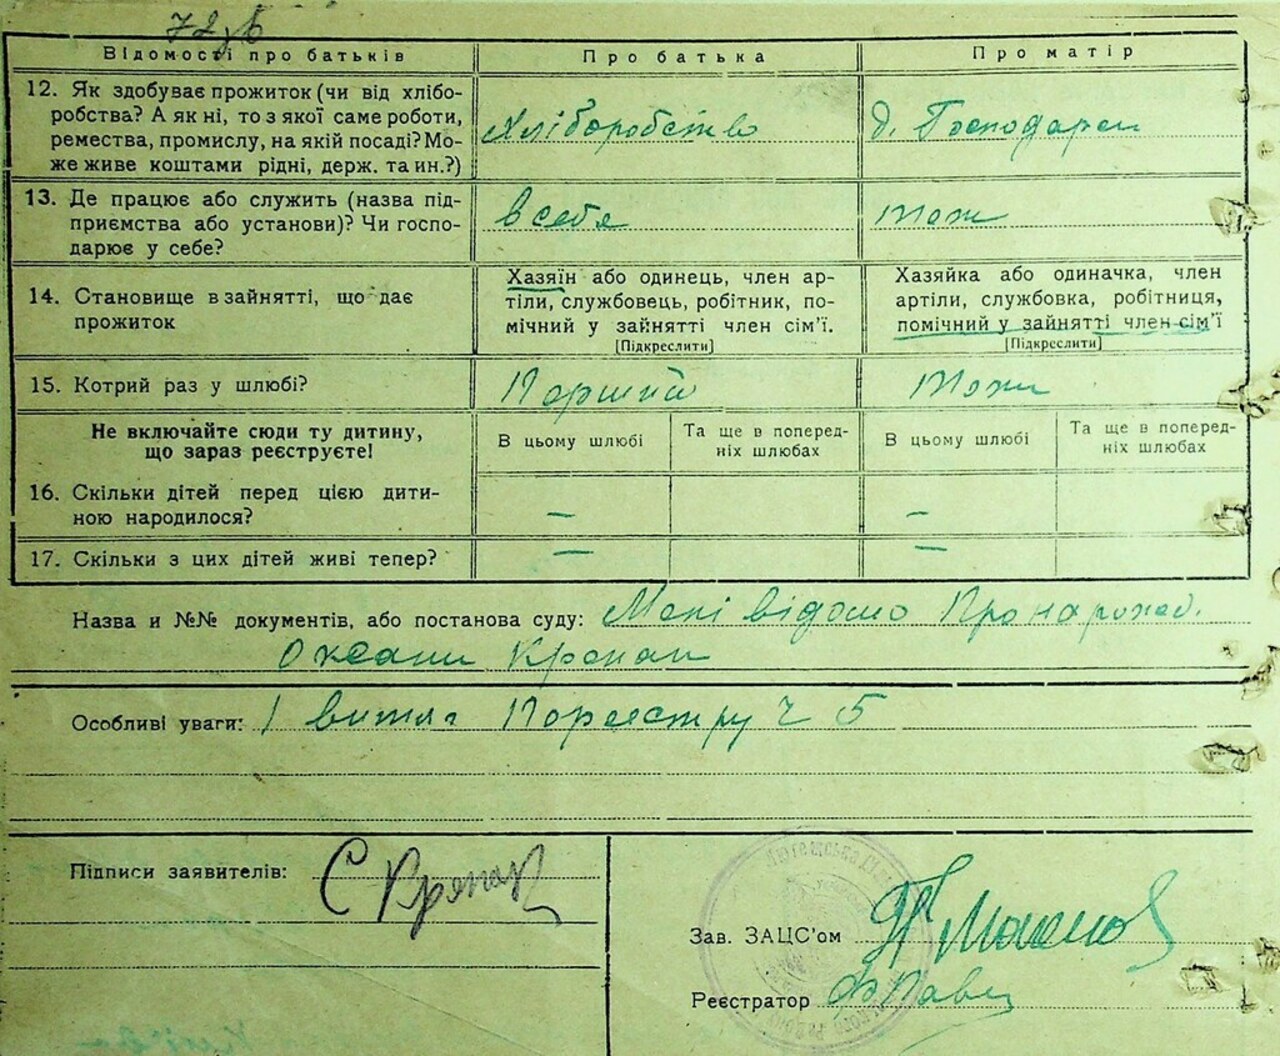 72
Відомості про батьків
Про батька
Про матір
12. Як здобуває прожиток (чи від хлібо-
робства? А як ні, то з якої саме роботи,
ремества, промислу, на якій посаді? Мо-
же живе коштами рідні, держ. та ин.?)
Хліборобство
д. Господарен
13. Де працює або служить (назва під-
приємства або установи)? Чи госпо-
дарює у себе?
в себе
тож
14. Становище в зайнятті, що дає
прожиток
Хазяїн або одинець, член ар-
тіли, службовець, робітник, по-
мічний у зайнятті член сім'ї.
[Підкреслити]
Хазяйка або одиначка, член
артіли, службовка, робітниця,
помічний у зайнятті член сім'ї
[Підкреслити]
15. Котрий раз у шлюбі?
Перший
тож
Не включайте сюди ту дитину,
що зараз реєструєте!
В цьому шлюбі
Та ще в поперед-
ніх шлюбах
В цьому шлюбі
Та ще в поперед-
ніх шлюбах
16. Скільки дітей перед цією дити-
ною народилося?
—
—
17. Скільки з цих дітей живі тепер?
—
—
Назва и №№ документів, або постанова суду: Мені відомо Про народж.
Оксани
Особливі уваги: 1 витяг По реєстру ч 5
Підписи заявителів: С
Зав. ЗАЦС'ом
Реєстратор